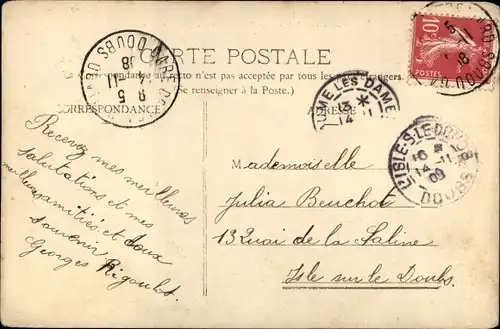 CARTE POSTALE
La correspondance au recto n'est pas acceptée par tous les pays étrangers
(Se renseigner à la Poste.)
CORRESPONDANCE
ADRESSE
Recevez mes meilleures
salutations et mes
meilleures amitiés et doux
souvenir
Georges Rigoulot
Mademoiselle
Julia Beuchot
13 Quai de la Saline
Isle sur le Doubs.
DOUBS
8 5
BAUME LES DAMES
13 *
14
L'ISLE-S-LE-DOUBS
16 *
14 -11
09
DOUBS
10c
POSTES
DOUBS